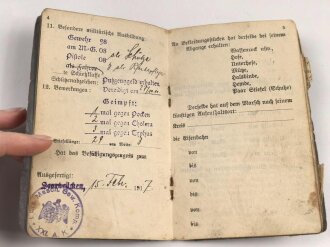 4
11. Besondere militärische Ausbildung:
Gewehr 98
am M.G. 08 als Schütze
Pistole 08
Schützenabzeichen:
12. Bemerkungen:
Geimpft:
1 mal gegen Pocken
2 mal gegen Cholera
3 mal gegen Typhus
Hat das Befähigungszeugnis zum
Ausgefertigt:
Saarbrücken, 15. Febr. 1917
XXI. A. K.
5
An Bekleidungsstücken hat derselbe bei seinem
Abgange erhalten:
Waffenrock
Hose,
Unterhose,
Mütze,
Halsbinde,
Hemde,
Paar Stiefel (Schuhe)
Derselbe hat auf dem Marsch nach seinem
künftigen Aufenthaltsort:
Kreis
die Eisenbahn
von:
bis:
von:
bis:
von:
bis: